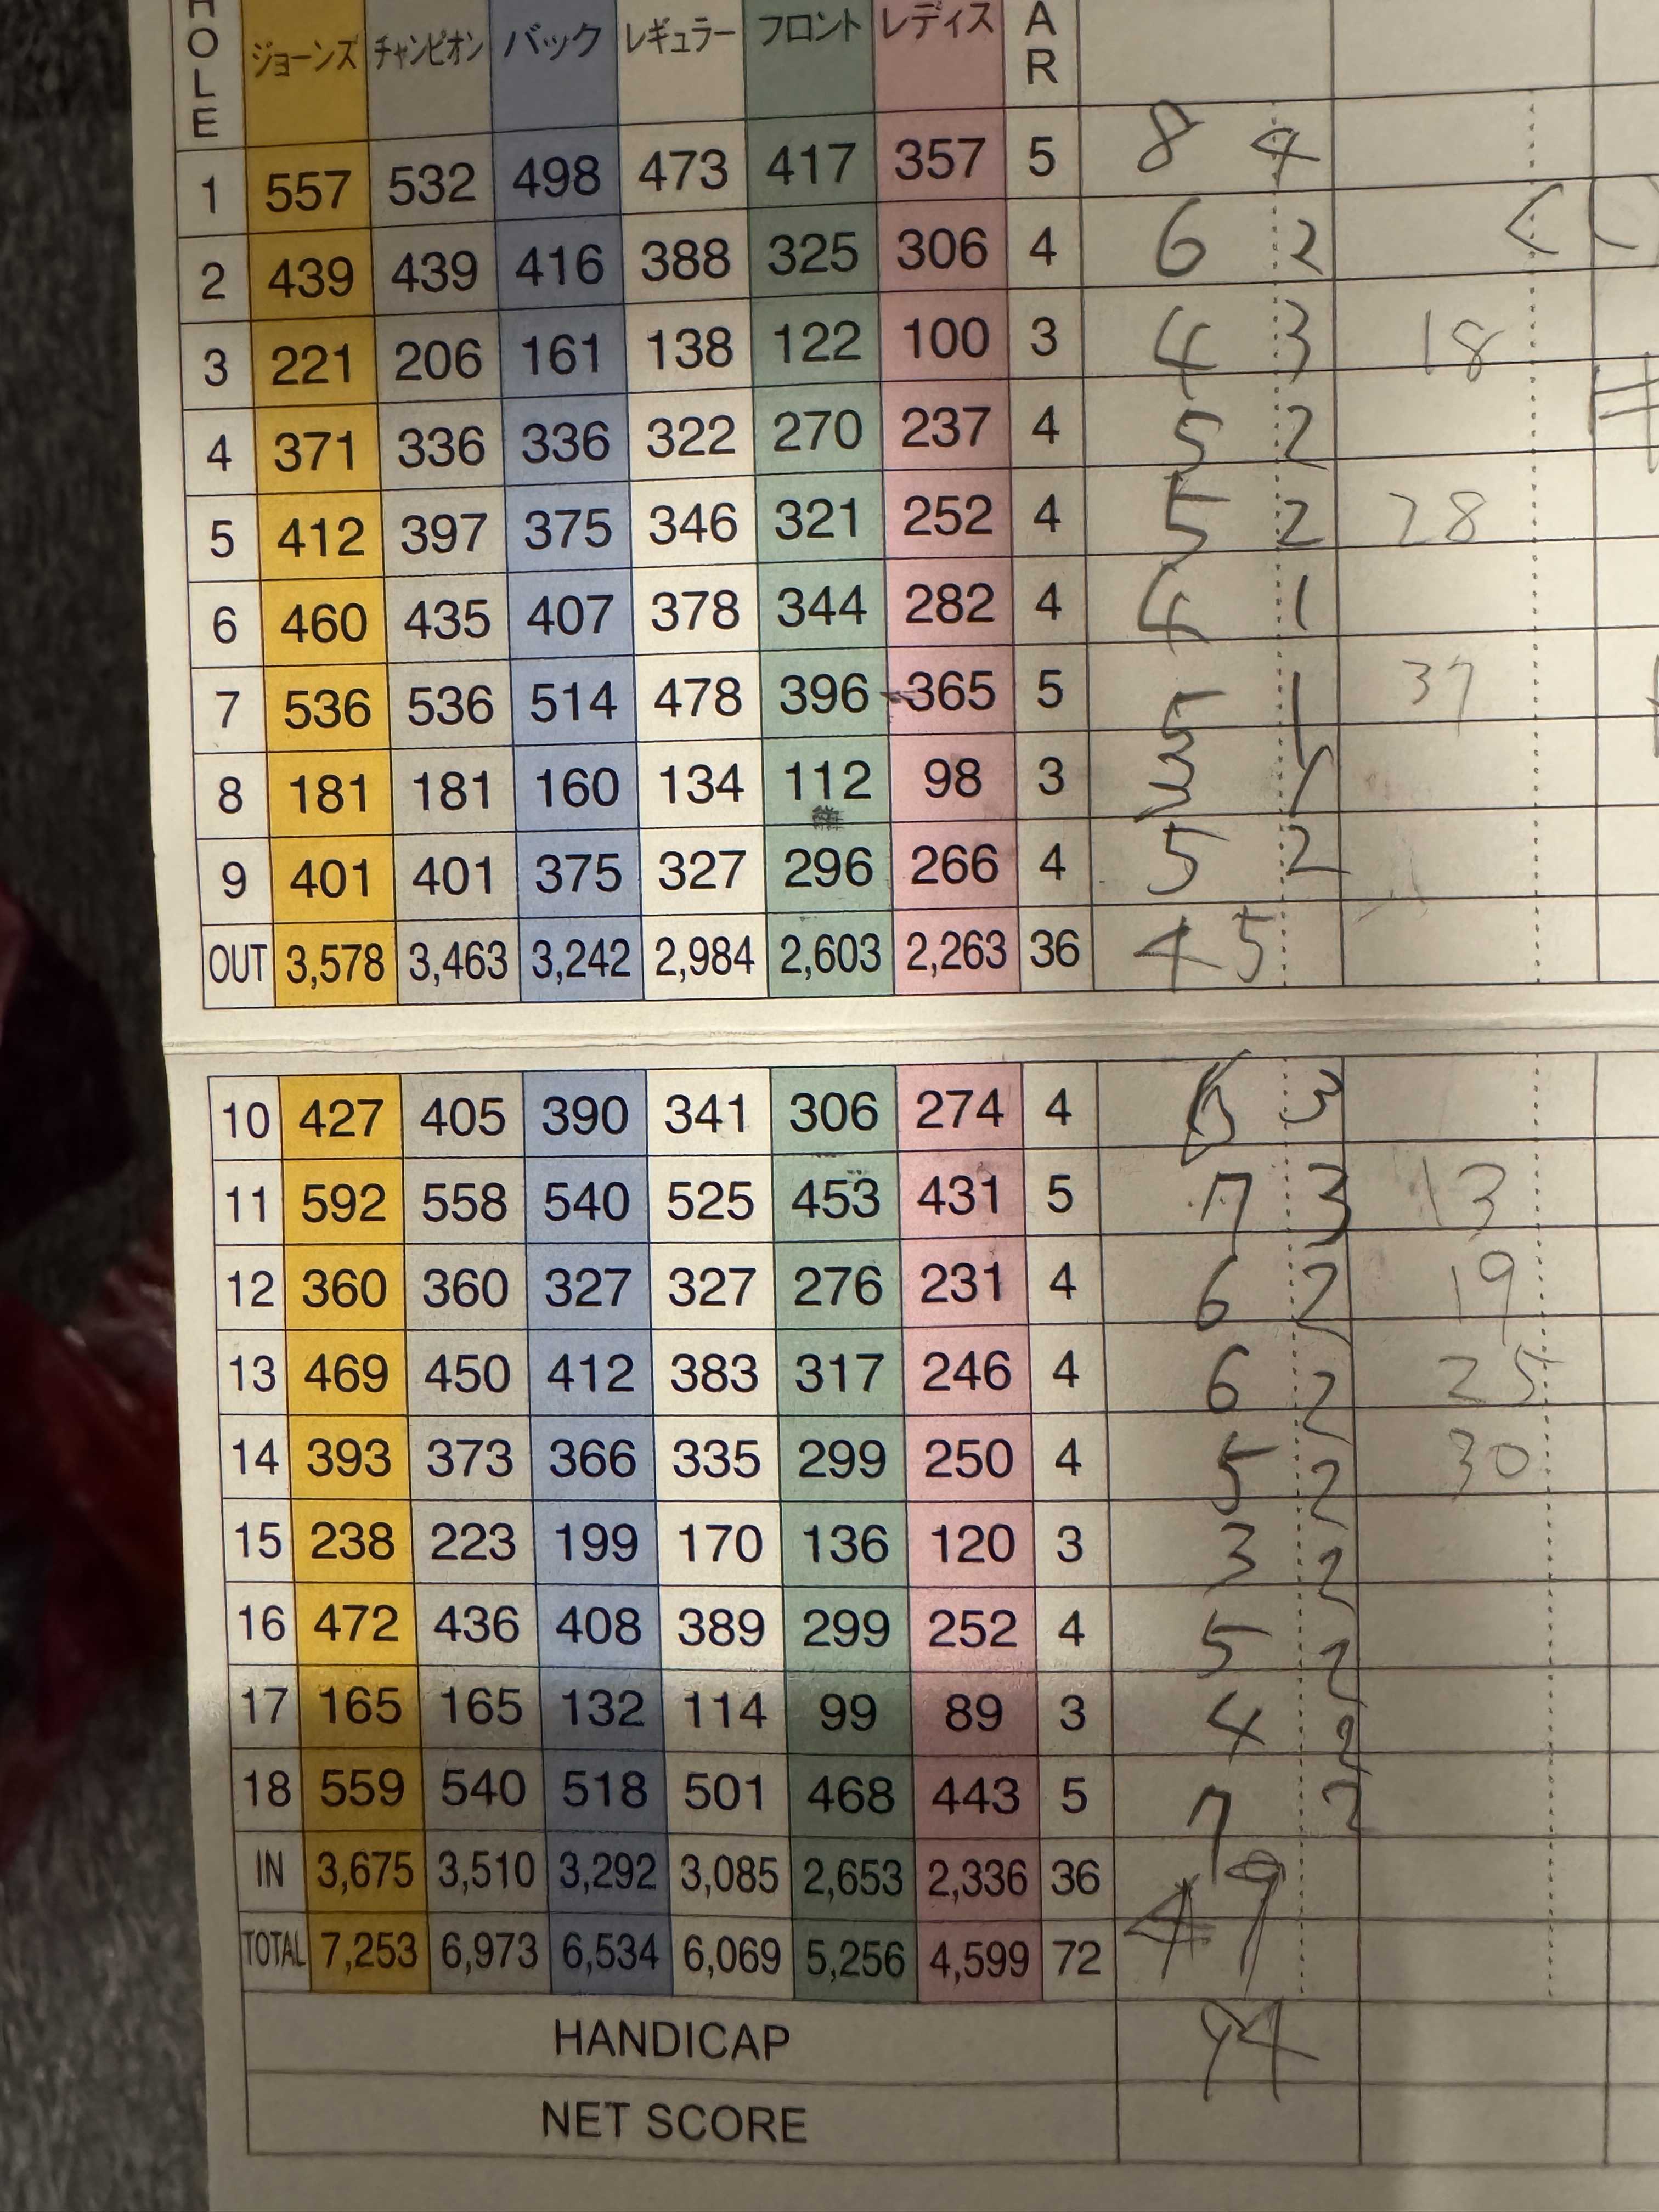 HOLE ジョーンズ チャンピオン バック レギュラー フロント レディス AR
1 557 532 498 473 417 357 5 8 4
2 439 439 416 388 325 306 4 6 2
3 221 206 161 138 122 100 3 4 3 18
4 371 336 336 322 270 237 4 5 2
5 412 397 375 346 321 252 4 5 2 28
6 460 435 407 378 344 282 4 4 1
7 536 536 514 478 396 365 5 5 1 37
8 181 181 160 134 112 98 3 3 1
9 401 401 375 327 296 266 4 5 2
OUT 3,578 3,463 3,242 2,984 2,603 2,263 36 45
10 427 405 390 341 306 274 4 6 3
11 592 558 540 525 453 431 5 7 3 13
12 360 360 327 327 276 231 4 6 2 19
13 469 450 412 383 317 246 4 6 2 25
14 393 373 366 335 299 250 4 5 2 30
15 238 223 199 170 136 120 3 3 2
16 472 436 408 389 299 252 4 5 2
17 165 165 132 114 99 89 3 4 2
18 559 540 518 501 468 443 5 7 2
IN 3,675 3,510 3,292 3,085 2,653 2,336 36 49
TOTAL 7,253 6,973 6,534 6,069 5,256 4,599 72
HANDICAP 94
NET SCORE